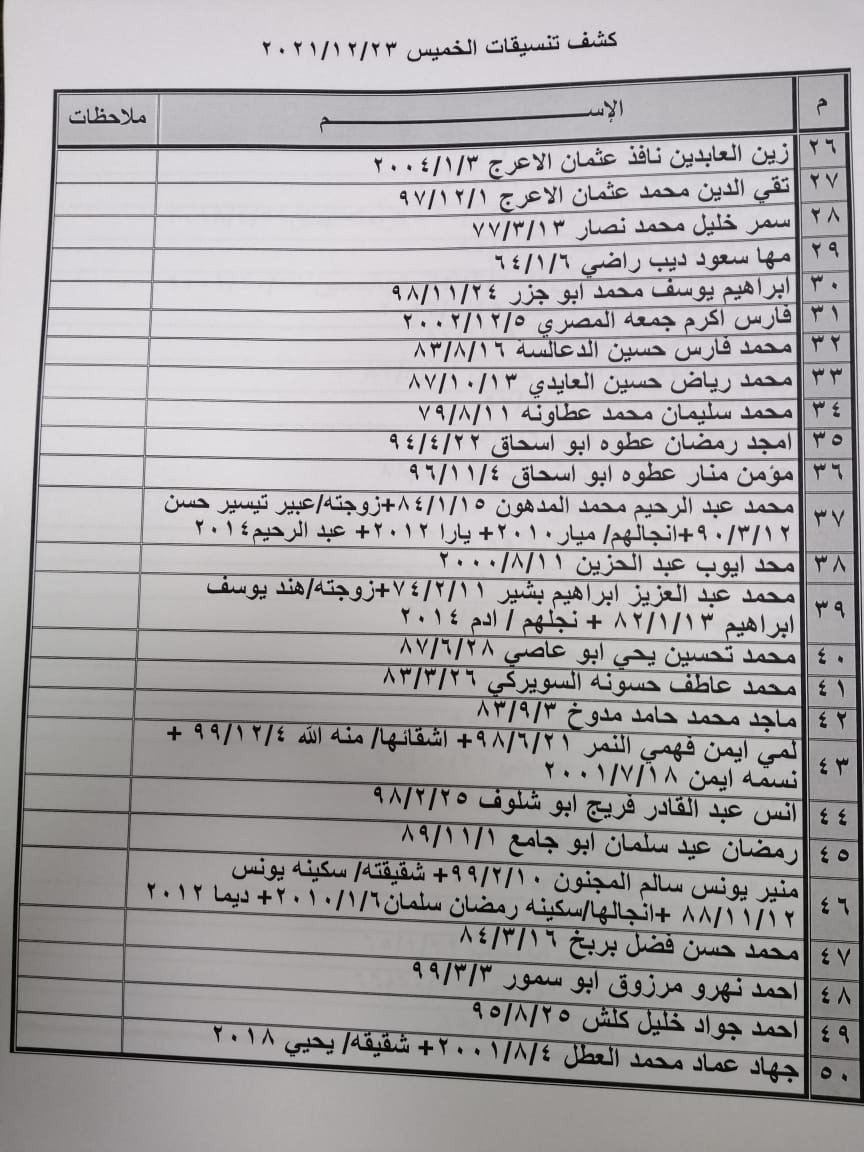 كشف تنسيقات الخميس ٢٠٢١/١٢/٢٣
م الإســـــــــــــم ملاحظات
٢٦ زين العابدين نافذ عثمان الاعرج ٢٠٠٤/١/٣
٢٧ تقي الدين محمد عثمان الاعرج ٩٧/١٢/١
٢٨ سمر خليل محمد نصار ٧٧/٣/١٣
٢٩ مها سعود ديب راضي ٦٤/١/٦
٣٠ ابراهيم يوسف محمد ابو جزر ٩٨/١١/٢٤
٣١ فارس اكرم جمعه المصري ٢٠٠٢/١٢/٥
٣٢ محمد فارس حسين الدعالسة ٨٣/٨/١٦
٣٣ محمد رياض حسين العايدي ٨٧/١٠/١٣
٣٤ محمد سليمان محمد عطاونه ٧٩/٨/١١
٣٥ امجد رمضان عطوه ابو اسحاق ٩٤/٤/٢٢
٣٦ مؤمن منار عطوه ابو اسحاق ٩٦/١١/٤
٣٧ محمد عبد الرحيم محمد المدهون ٨٤/١/١٥+زوجته/عبير تيسير حسن
٩٠/٣/١٢+انجالهم/ ميار٢٠١٠+ يارا ٢٠١٢+ عبد الرحيم٢٠١٤
٣٨ محد ايوب عبد الحزين ٢٠٠٠/٨/١١
٣٩ محمد عبد العزيز ابراهيم بشير ٧٤/٢/١١+زوجته/هند يوسف
ابراهيم ٨٢/١/١٣ + نجلهم / ادم ٢٠١٤
٤٠ محمد تحسين يحي ابو عاصي ٨٧/٦/٢٨
٤١ محمد عاطف حسونه السويركي ٨٣/٣/٢٦
٤٢ ماجد محمد حامد مدوخ ٨٣/٩/٣
٤٣ لمي ايمن فهمي النمر ٩٨/٦/٢١+ اشقائها/ منه الله ٩٩/١٢/٤ +
نسمه ايمن ٢٠٠١/٧/١٨
٤٤ انس عبد القادر فريج ابو شلوف ٩٨/٢/٢٥
٤٥ رمضان عيد سلمان ابو جامع ٨٩/١١/١
٤٦ منير يونس سالم المجنون ٩٩/٢/١٠+ شقيقته/ سكينه يونس
٨٨/١١/١٢ +انجالها/سكينه رمضان سلمان٢٠١٠/١/٦+ ديما ٢٠١٢
٤٧ محمد حسن فضل بربخ ٨٤/٣/١٦
٤٨ احمد نهرو مرزوق ابو سمور ٩٩/٣/٣
٤٩ احمد جواد خليل كلش ٩٥/٨/٢٥
٥٠ جهاد عماد محمد العطل ٢٠٠١/٨/٤+ شقيقه/ يحيي ٢٠١٨